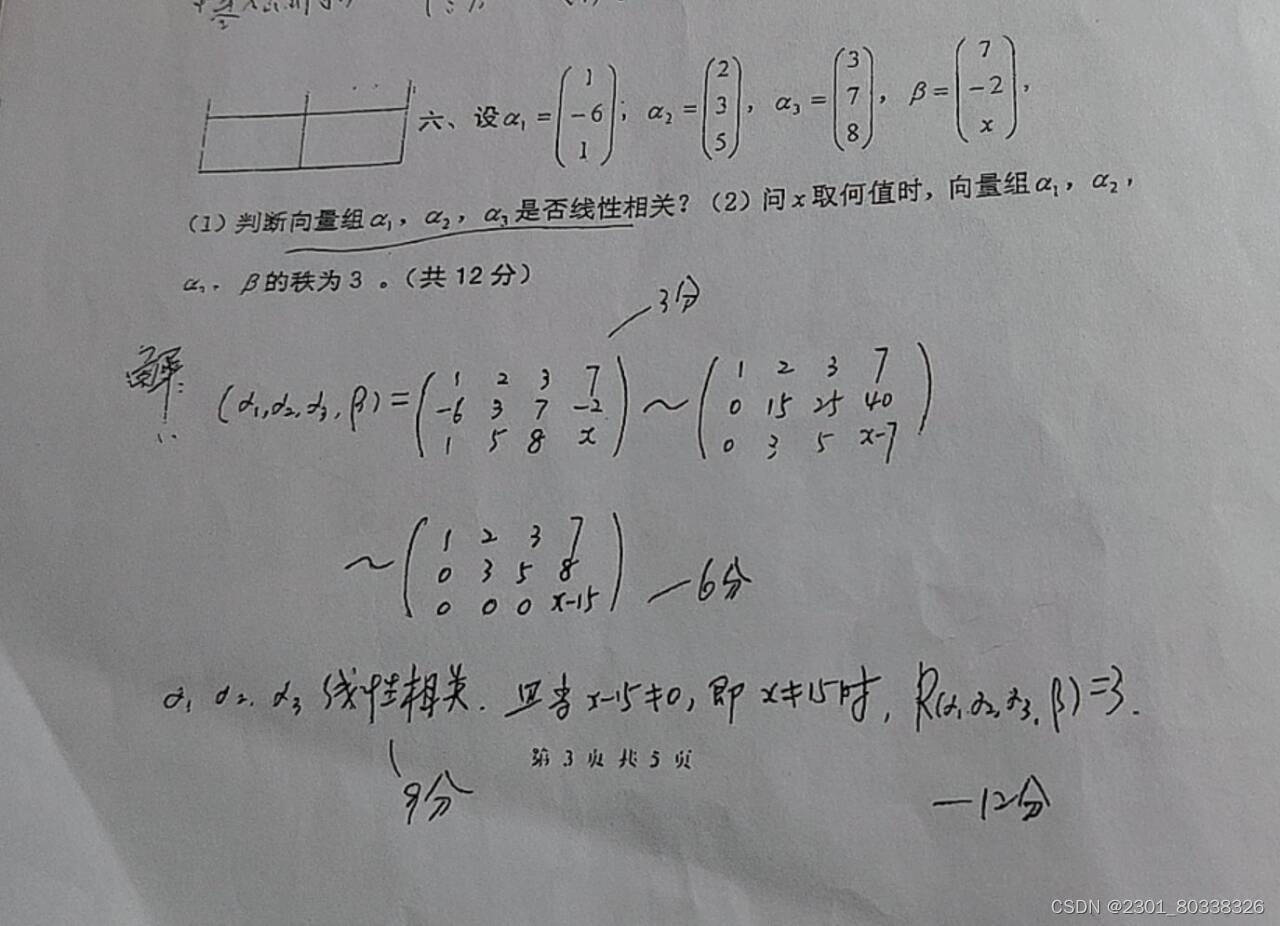 六、设α₁ = (1 -6 1); α₂ = (2 3 5), α₃ = (3 7 8), β = (7 -2 x),
(1)判断向量组α₁，α₂，α₃是否线性相关？(2)问x取何值时，向量组α₁，α₂，
α₃，β的秩为3。(共12分)
3分
解: (α₁,α₂,α₃,β) = (1 2 3 7 / -6 3 7 -2 / 1 5 8 x) ~ (1 2 3 7 / 0 15 25 40 / 0 3 5 x-7)
~ (1 2 3 7 / 0 3 5 8 / 0 0 0 x-15) — 6分
α₁ α₂. α₃ 线性相关. 且当 x-15≠0, 即 x≠15时, R(α₁,α₂,α₃,β)=3.
第 3 页 共 5 页
9分
— 12分
CSDN @2301_80338326